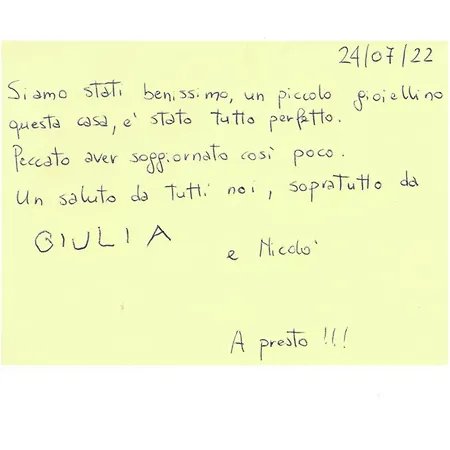 24/07/22
Siamo stati benissimo, un piccolo gioiellino
questa casa, e' stato tutto perfetto.
Peccato aver soggiornato così poco.
Un saluto da tutti noi, sopratutto da
GIULIA
e Nicolo'
A presto !!!